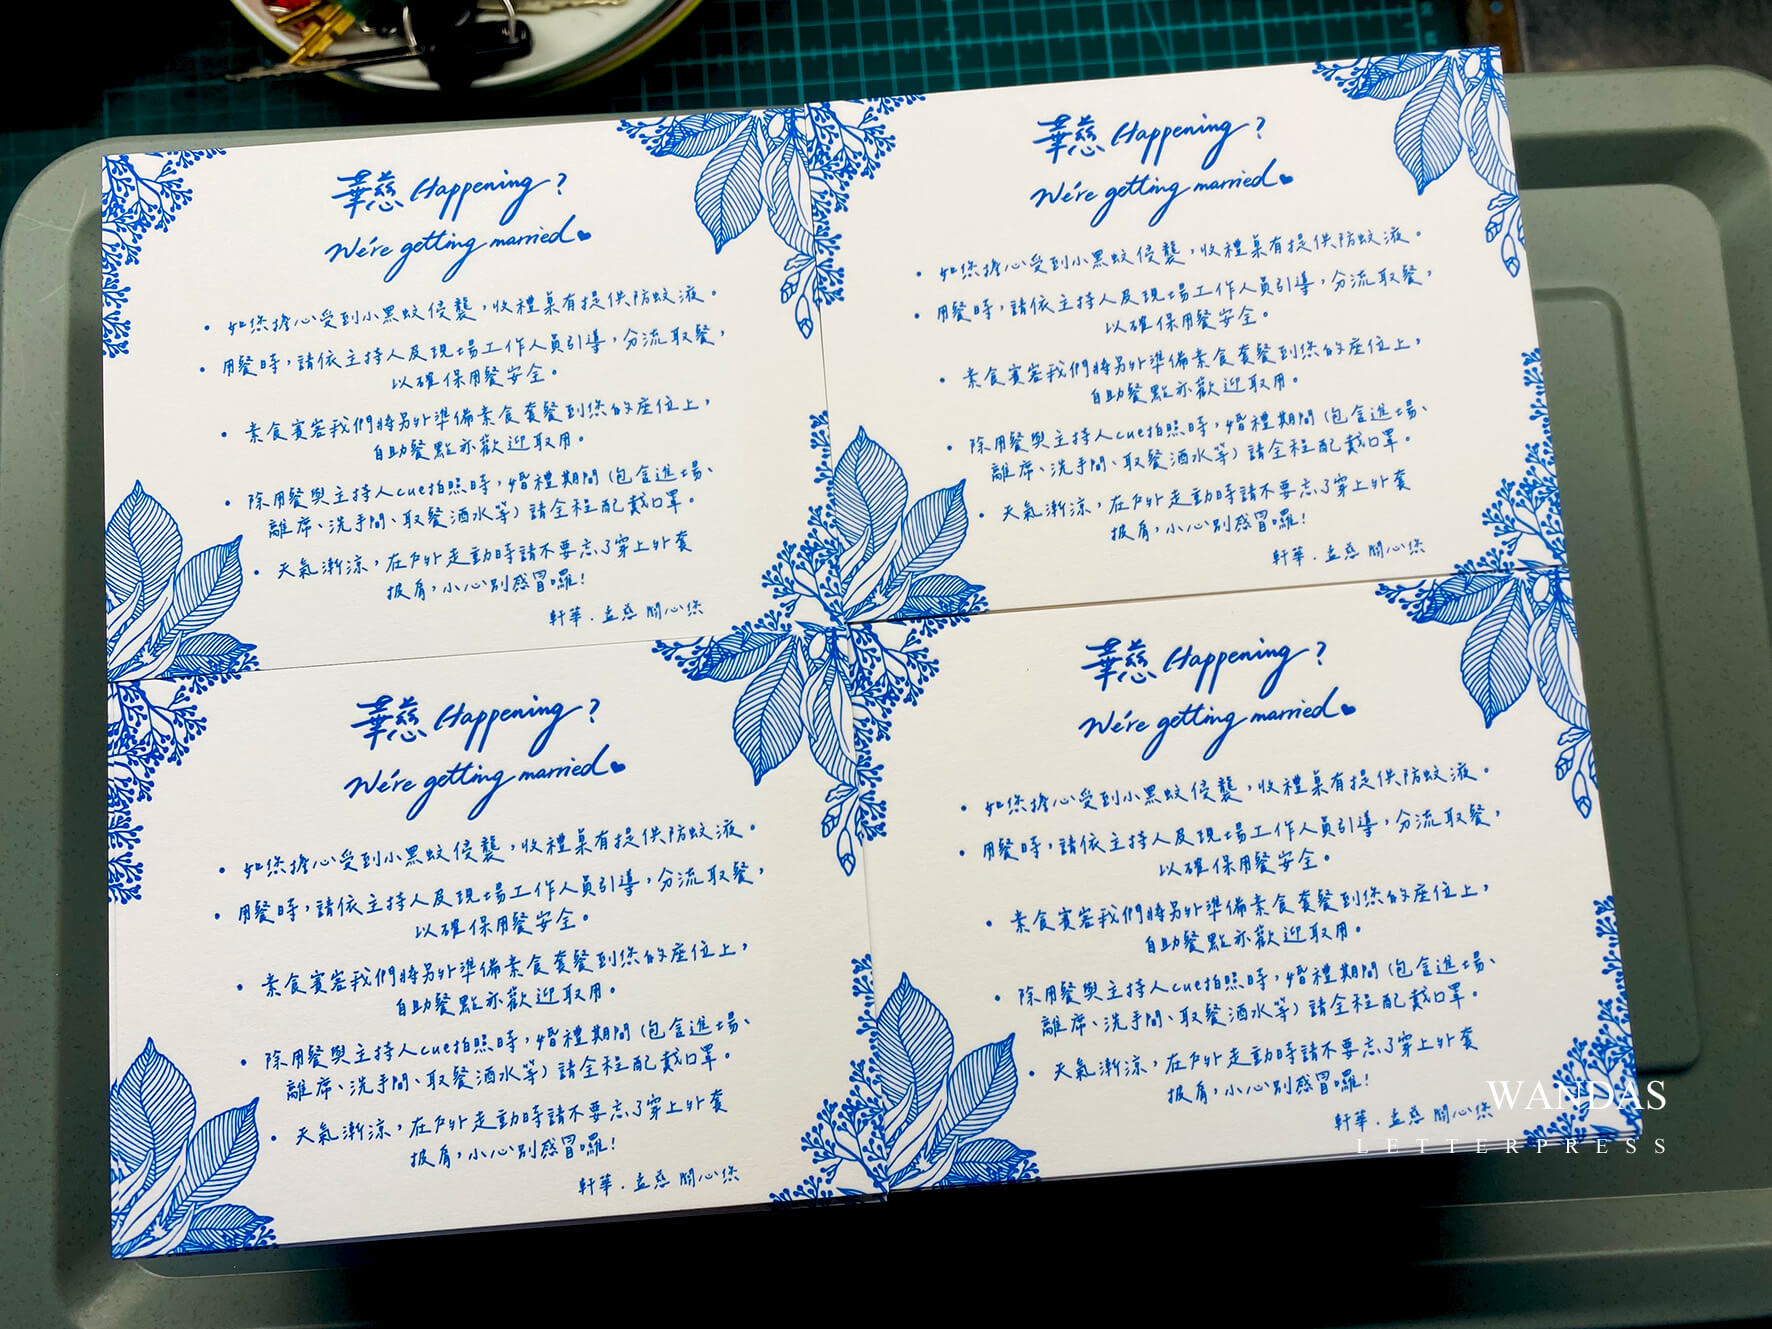 華慈 Happening?
We're getting married
• 如您擔心受到小黑蚊侵襲，收禮桌有提供防蚊液。
• 用餐時，請依主持人及現場工作人員引導，分流取餐，
以確保用餐安全。
• 素食賓客我們將另外準備素食套餐到您的座位上，
自助餐點亦歡迎取用。
• 除用餐與主持人cue拍照時，婚禮期間（包含進場、
離席、洗手間、取餐酒水等）請全程配戴口罩。
• 天氣漸涼，在戶外走動時請不要忘了穿上外套
披肩，小心別感冒囉！
軒華．孟慈 關心您
華慈 Happening?
We're getting married
• 如您擔心受到小黑蚊侵襲，收禮桌有提供防蚊液。
• 用餐時，請依主持人及現場工作人員引導，分流取餐，
以確保用餐安全。
• 素食賓客我們將另外準備素食套餐到您的座位上，
自助餐點亦歡迎取用。
• 除用餐與主持人cue拍照時，婚禮期間（包含進場、
離席、洗手間、取餐酒水等）請全程配戴口罩。
• 天氣漸涼，在戶外走動時請不要忘了穿上外套
披肩，小心別感冒囉！
軒華．孟慈 關心您
華慈 Happening?
We're getting married
• 如您擔心受到小黑蚊侵襲，收禮桌有提供防蚊液。
• 用餐時，請依主持人及現場工作人員引導，分流取餐，
以確保用餐安全。
• 素食賓客我們將另外準備素食套餐到您的座位上，
自助餐點亦歡迎取用。
• 除用餐與主持人cue拍照時，婚禮期間（包含進場、
離席、洗手間、取餐酒水等）請全程配戴口罩。
• 天氣漸涼，在戶外走動時請不要忘了穿上外套
披肩，小心別感冒囉！
軒華．孟慈 關心您
華慈 Happening?
We're getting married
• 如您擔心受到小黑蚊侵襲，收禮桌有提供防蚊液。
• 用餐時，請依主持人及現場工作人員引導，分流取餐，
以確保用餐安全。
• 素食賓客我們將另外準備素食套餐到您的座位上，
自助餐點亦歡迎取用。
• 除用餐與主持人cue拍照時，婚禮期間（包含進場、
離席、洗手間、取餐酒水等）請全程配戴口罩。
• 天氣漸涼，在戶外走動時請不要忘了穿上外套
披肩，小心別感冒囉！
軒華．孟慈 關心您
WANDAS
LETTERPRESS